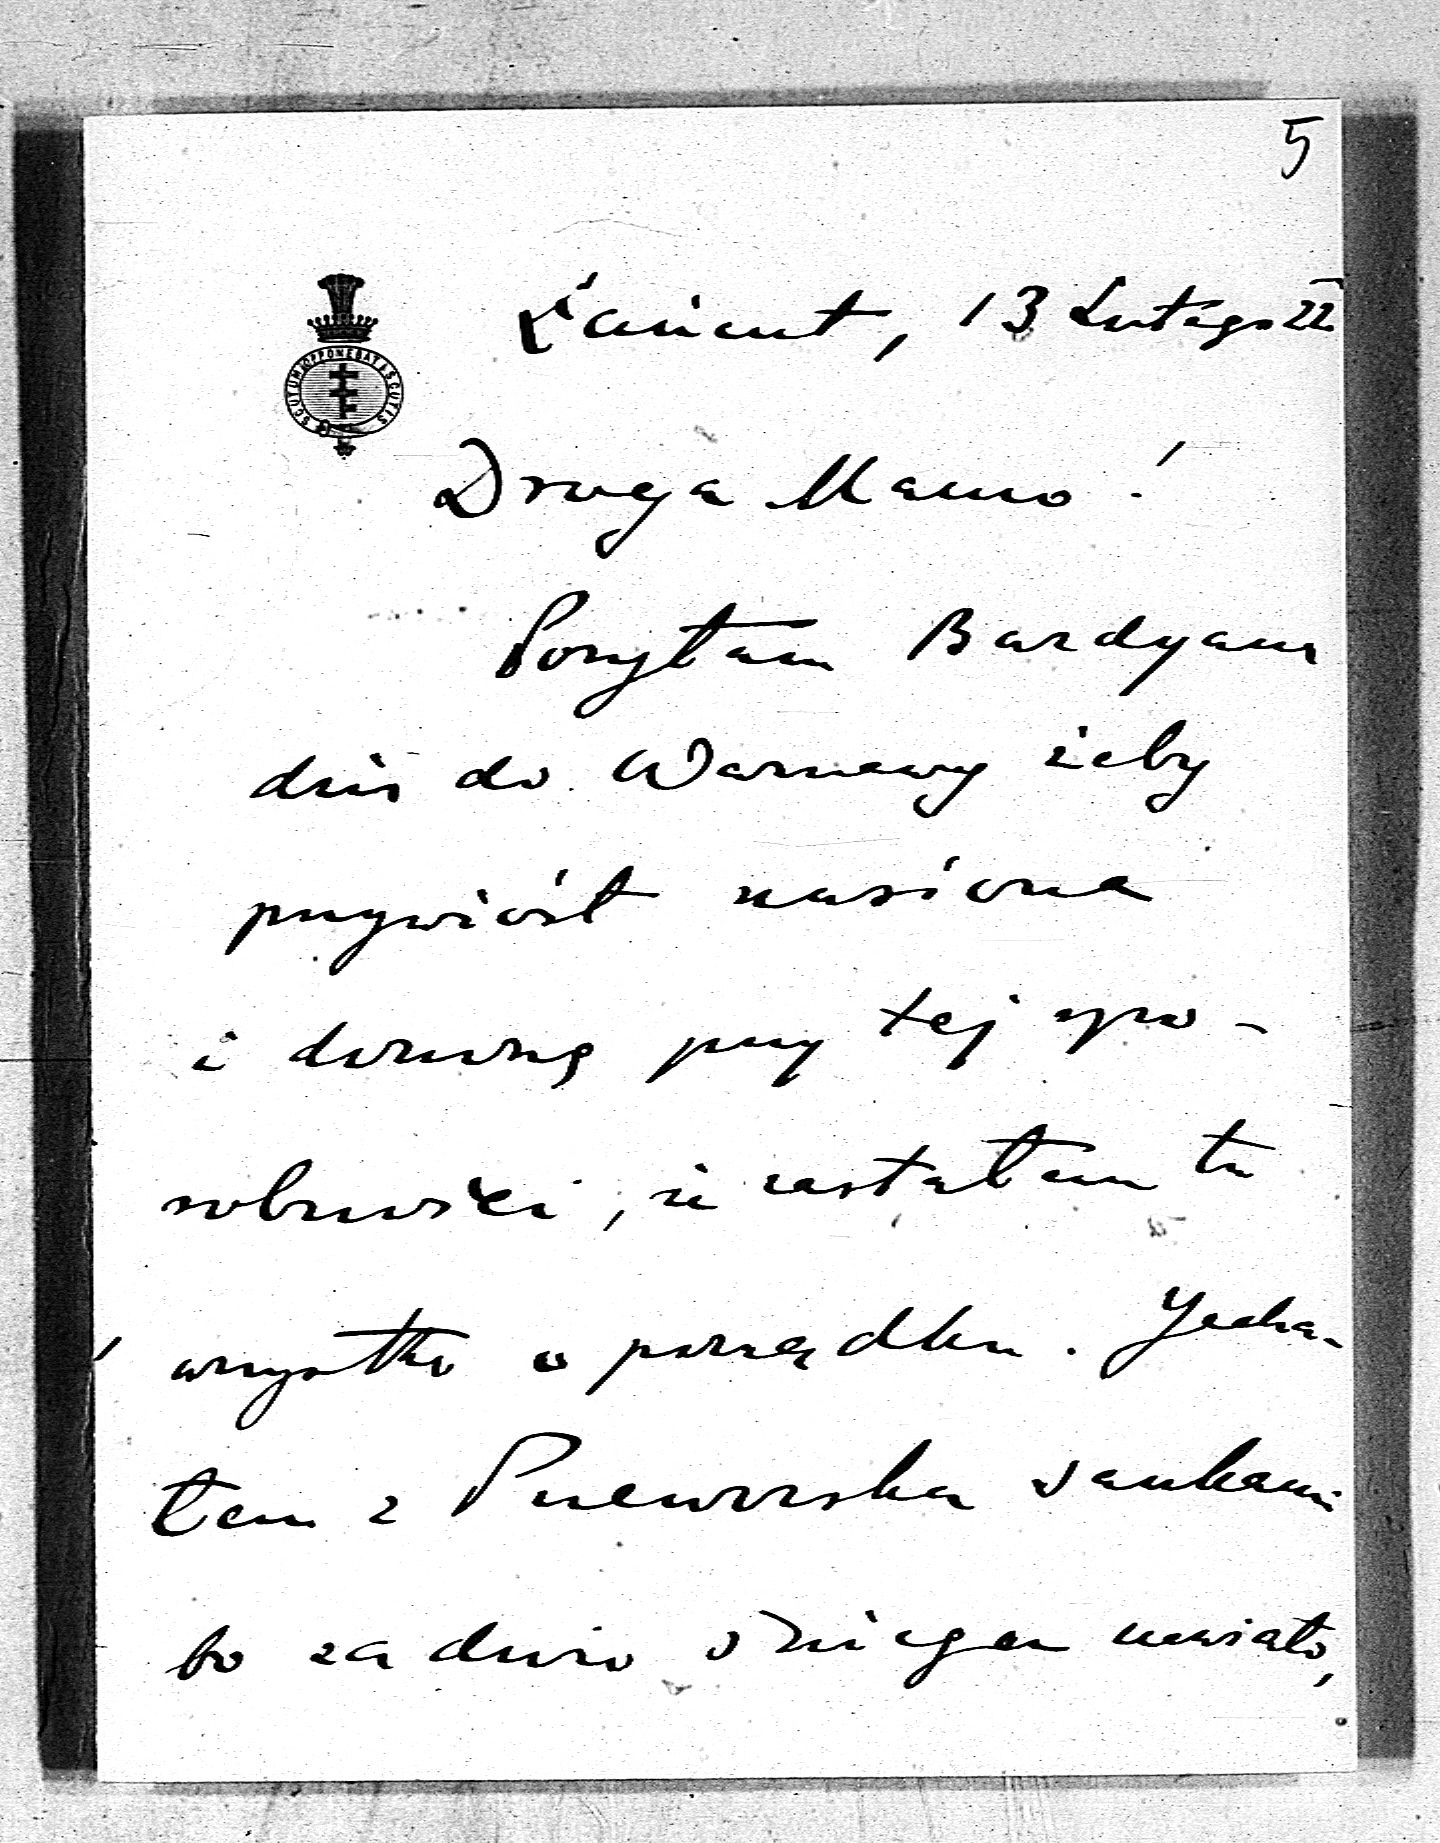 5
SCUTUM OPPONEBAT SCUTIS
Łańcut, 13 Lutego 22
Droga Mamo!
Posyłam Bardyana
dziś do Warszawy żeby
przywiózł nasiona
i donoszę przy tej spo-
sobności, że zastałam tu
wszystko w porządku. Jecha-
łam z Przeworska sankami
bo za dużo śniegu nawiało,